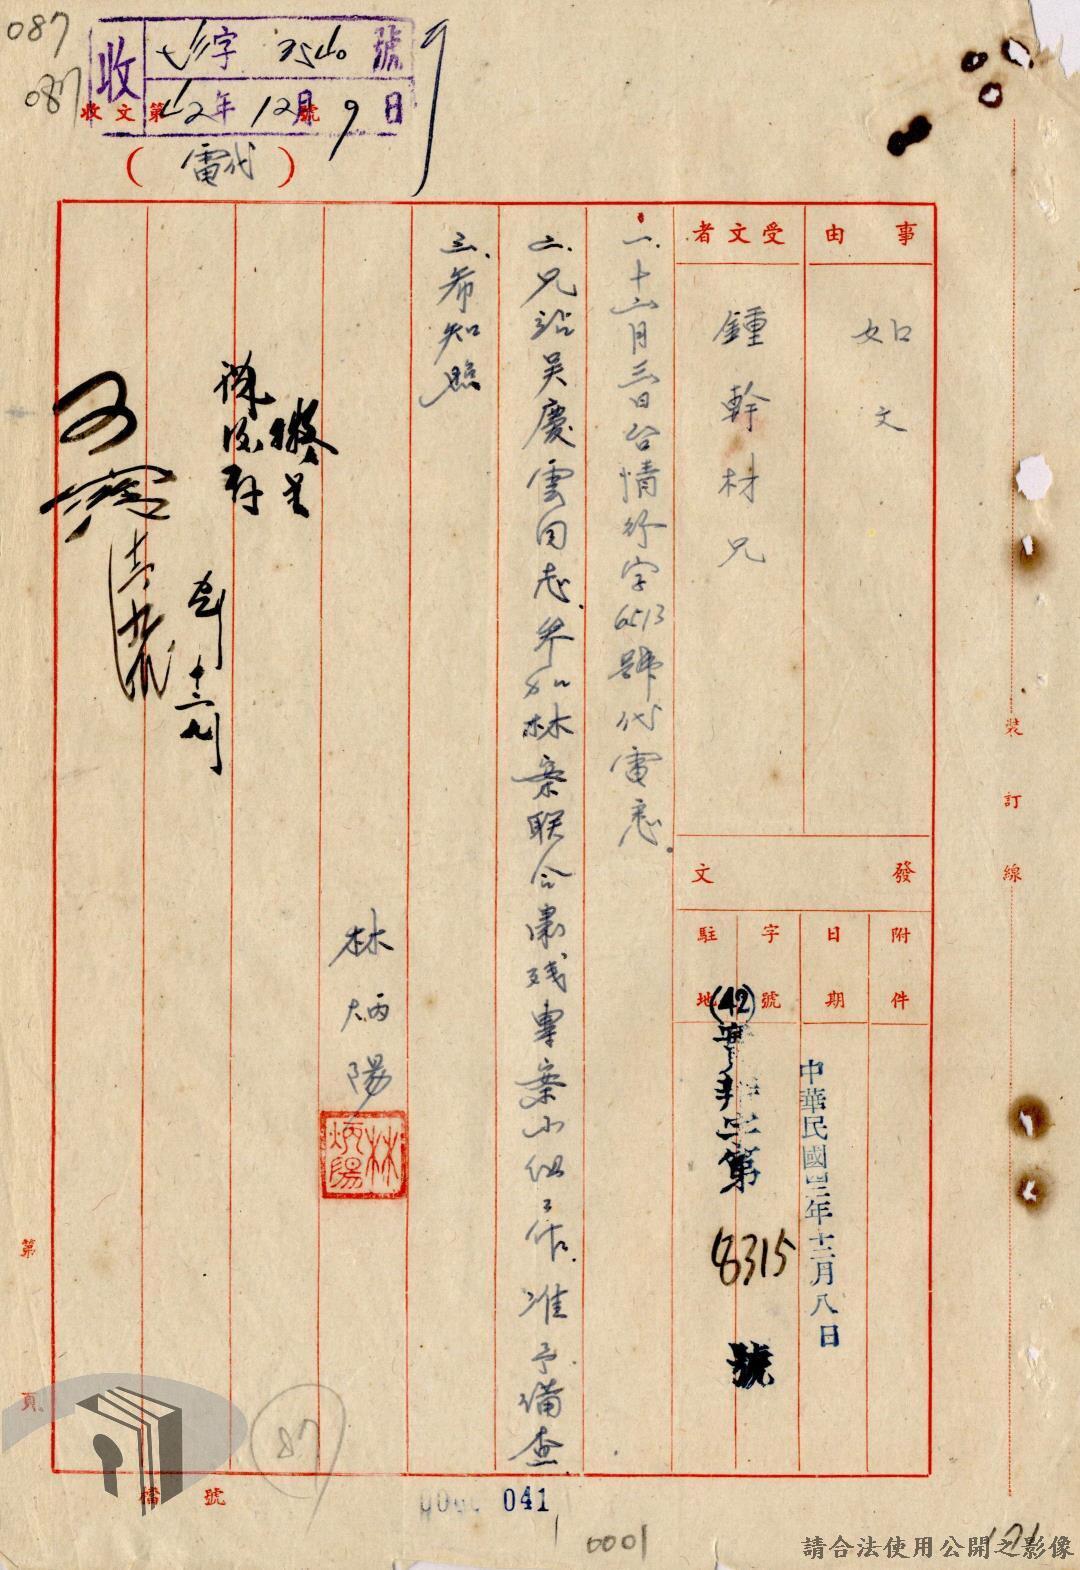 087
087
收 字 3540 號
42年 12月 9日
收文第 號
(代電)
事由
如文
受文者
鍾幹材兄
發文
附件
日期
中華民國四二年十二月八日
字號
(42) 第 8315 號
駐地
一、十二月三日台情行字6513號代電悉.
二、兄站吳慶雲同志.參加林案联合肅殘專案小組工作.准予備查
三、希知照
林炳陽
林炳陽
擬呈
十二、九
裝訂線
第 頁
檔號
87
041
0001
121
請合法使用公開之影像